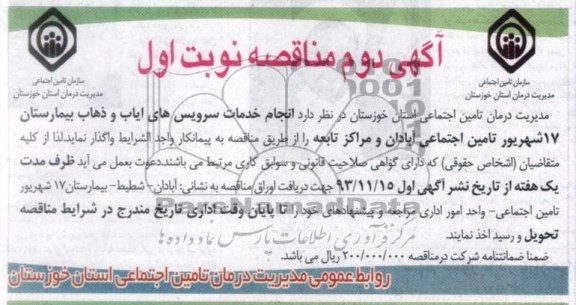 آگهی دوم مناقصه نوبت اول
سازمان تامین اجتماعی
مدیریت درمان استان خوزستان
سازمان تامین اجتماعی
مدیریت درمان استان خوزستان
مدیریت درمان تامین اجتماعی استان خوزستان در نظر دارد انجام خدمات سرویس های ایاب و ذهاب بیمارستان
۱۷شهریور تامین اجتماعی آبادان و مراکز تابعه را از طریق مناقصه به پیمانکار واجد الشرایط واگذار نماید.لذا از کلیه
متقاضیان (اشخاص حقوقی) که دارای گواهی صلاحیت قانونی و سوابق کاری مرتبط می باشند.دعوت بعمل می آید ظرف مدت
یک هفته از تاریخ نشر آگهی اول ۹۳/۱۱/۱۵ جهت دریافت اوراق مناقصه به نشانی: آبادان- شطیط- بیمارستان۱۷ شهریور
تامین اجتماعی- واحد امور اداری مراجعه و پیشنهادهای خود را تا پایان وقت اداری تاریخ مندرج در شرایط مناقصه
تحویل و رسید اخذ نمایند.
ضمنا ضمانتنامه شرکت درمناقصه ۲۰۰/۰۰۰/۰۰۰ ریال می باشد.
روابط عمومی مدیریت درمان تامین اجتماعی استان خوزستان
ParsNamadData
مرکز فرآوری اطلاعات پارس نماد داده ها